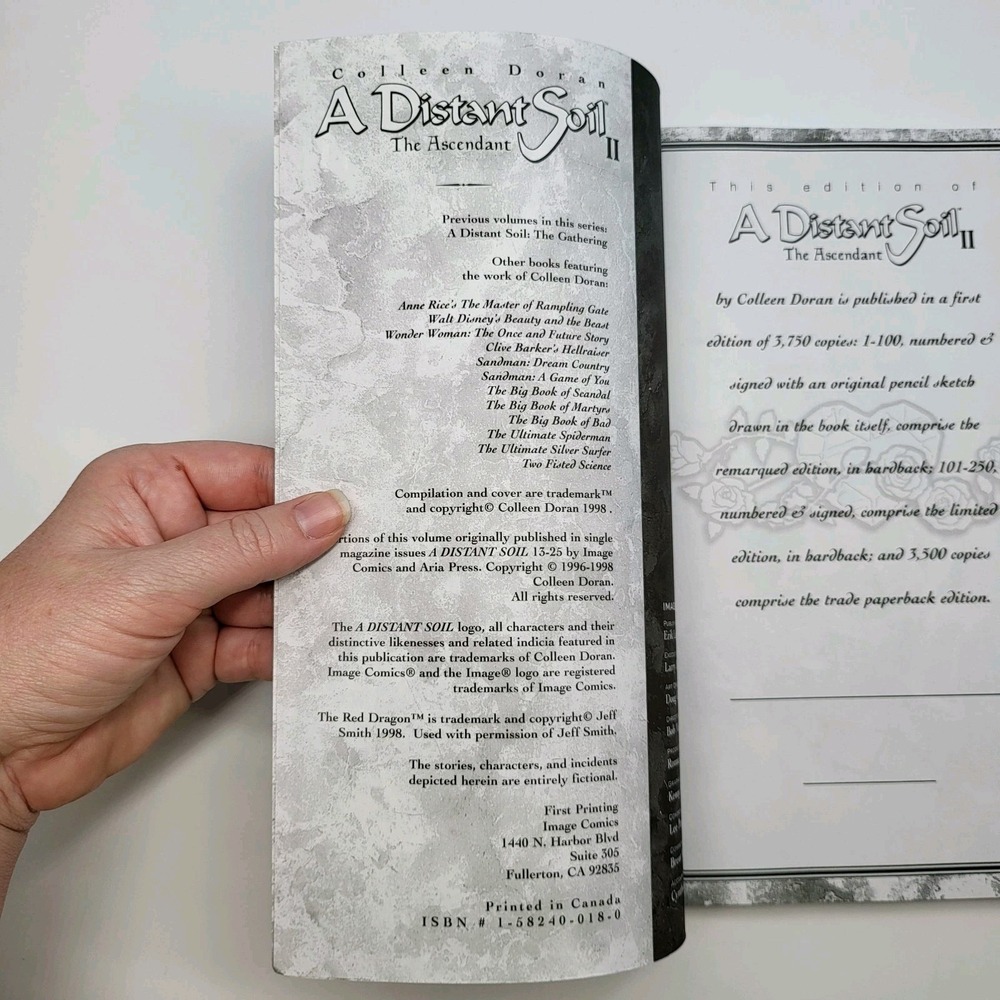 Colleen Doran
A Distant Soil™
The Ascendant II
Previous volumes in this series:
A Distant Soil: The Gathering
Other books featuring
the work of Colleen Doran:
Anne Rice's The Master of Rampling Gate
Walt Disney's Beauty and the Beast
Wonder Woman: The Once and Future Story
Clive Barker's Hellraiser
Sandman: Dream Country
Sandman: A Game of You
The Big Book of Scandal
The Big Book of Martyrs
The Big Book of Bad
The Ultimate Spiderman
The Ultimate Silver Surfer
Two Fisted Science
Compilation and cover are trademark™
and copyright© Colleen Doran 1998 .
of this volume originally published in single
magazine issues A DISTANT SOIL 13-25 by Image
Comics and Aria Press. Copyright © 1996-1998
Colleen Doran.
All rights reserved.
The A DISTANT SOIL logo, all characters and their
distinctive likenesses and related indicia featured in
this publication are trademarks of Colleen Doran.
Image Comics® and the Image® logo are registered
trademarks of Image Comics.
The Red Dragon™ is trademark and copyright© Jeff
Smith 1998. Used with permission of Jeff Smith.
The stories, characters, and incidents
depicted herein are entirely fictional.
First Printing
Image Comics
1440 N. Harbor Blvd
Suite 305
Fullerton, CA 92835
Printed in Canada
ISBN # 1-58240-018-0
This edition of
A Distant Soil™
The Ascendant II
by Colleen Doran is published in a first
edition of 3,750 copies: 1-100, numbered &
signed with an original pencil sketch
drawn in the book itself, comprise the
remarqued edition, in hardback; 101-250,
numbered & signed, comprise the limited
edition, in hardback; and 3,500 copies
comprise the trade paperback edition.